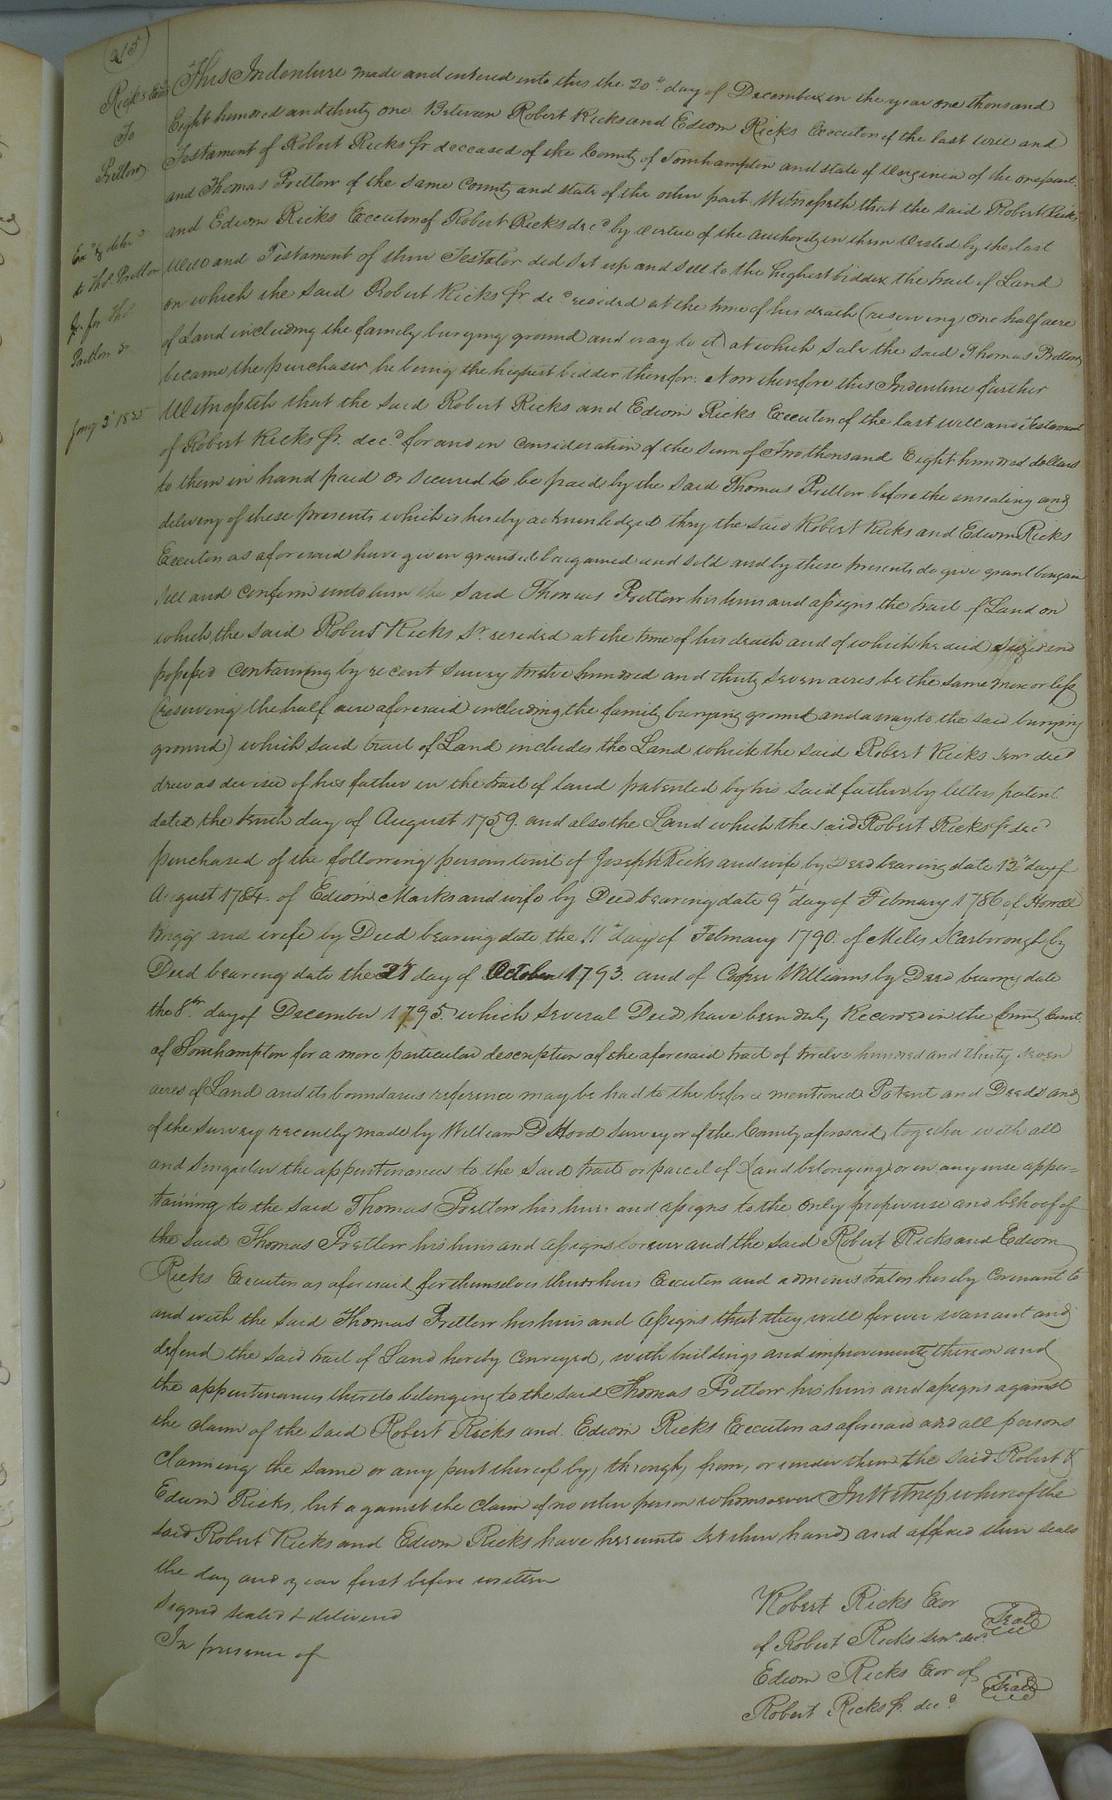 215
Ricks Exors
To
Pretlow
Exd & deld
to Thos Pretlow
Jr for Thos
Pretlow Sr
Jany 3d 1835
This Indenture made and entered into this the 20th day of December in the year one thousand
Eight hundred and thirty one Between Robert Ricks and Edwin Ricks Executors of the last will and
Testament of Robert Ricks Sr deceased of the County of Southampton and state of Virginia of the one part
and Thomas Pretlow of the same County and state of the other part Witnesseth that the said Robert Ricks
and Edwin Ricks Executors of Robert Ricks decd by virtue of the authority in them vested by the last
Will and Testament of their Testator did set up and sell to the highest bidder the tract of Land
on which the said Robert Ricks Sr decd resided at the time of his death (reserving one half acre
of Land including the family burying ground and way to it) at which sale the said Thomas Pretlow
became the purchaser he being the highest bidder therefor. Now therefore this Indenture further
Witnesseth that the said Robert Ricks and Edwin Ricks Executors of the last will and Testament
of Robert Ricks Sr. decd for and in consideration of the sum of Two thousand Eight hundred dollars
to them in hand paid or secured to be paid by the said Thomas Pretlow before the ensealing and
delivery of these presents which is hereby acknowledged they the said Robert Ricks and Edwin Ricks
Executors as aforesaid have given granted bargained and sold and by these presents do give grant bargain
sell and confirm unto him the said Thomas Pretlow his heirs and assigns the tract of Land on
which the said Robert Ricks Sr resided at the time of his death and of which he died seized and
possessed containing by recent survey twelve hundred and thirty seven acres be the same more or less
(reserving the half acre aforesaid including the family burying ground and a way to the said burying
ground) which said tract of Land includes the Land which the said Robert Ricks Senr decd
drew as devisee of his father in the tract of land patented by his said father by letters patent
dated the tenth day of August 1759. and also the Land which the said Robert Ricks Sr decd
purchased of the following persons towit of Joseph Ricks and wife by Deed bearing date 12th day of
August 1784. of Edwin Marks and wife by Deed bearing date 9th day of February 1786 of Howell
and wife by Deed bearing date the 11th day of February 1790. of Miles Scarbrough by
Deed bearing date the day of October 1793. and of Cooper Williams by Deed bearing date
the 8th day of December 1795. which several Deeds have been duly Recorded in the County Court
of Southampton for a more particular description of the aforesaid tract of twelve hundred and thirty seven
acres of Land and its boundaries reference may be had to the before mentioned Patent and Deeds and
of the survey recently made by William D Hood Surveyor of the County aforesaid together with all
and singular the appurtenances to the said tract or parcel of Land belonging or in any wise apper=
taining to the said Thomas Pretlow his heirs and assigns to the only proper use and behoof of
the said Thomas Pretlow his heirs and assigns forever and the said Robert Ricks and Edwin
Ricks Executors as aforesaid for themselves their heirs Executors and administrators hereby covenant to
and with the said Thomas Pretlow his heirs and assigns that they will forever warrant and
defend the said tract of Land hereby conveyed, with buildings and improvements thereon and
the appurtenances thereto belonging to the said Thomas Pretlow his heirs and assigns against
the claim of the said Robert Ricks and Edwin Ricks Executors as aforesaid and all persons
claiming the same or any part thereof by, through, from, or under them the said Robert &
Edwin Ricks, but against the claim of no other person whomsoever In Witness whereof the
said Robert Ricks and Edwin Ricks have hereunto set their hands and affixed their seals
the day and year first before written
Signed sealed & delivered
In presence of
Robert Ricks Exor
of Robert Ricks Senr decd Seal
Edwin Ricks Exor of
Robert Ricks Sr. decd. Seal